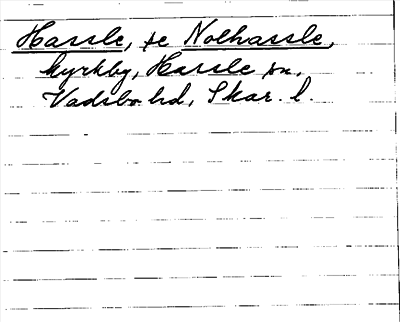 Hassle, se Nolhassle,
kyrkby, Hassle sn,
Vadsbo hd, Skar. l.